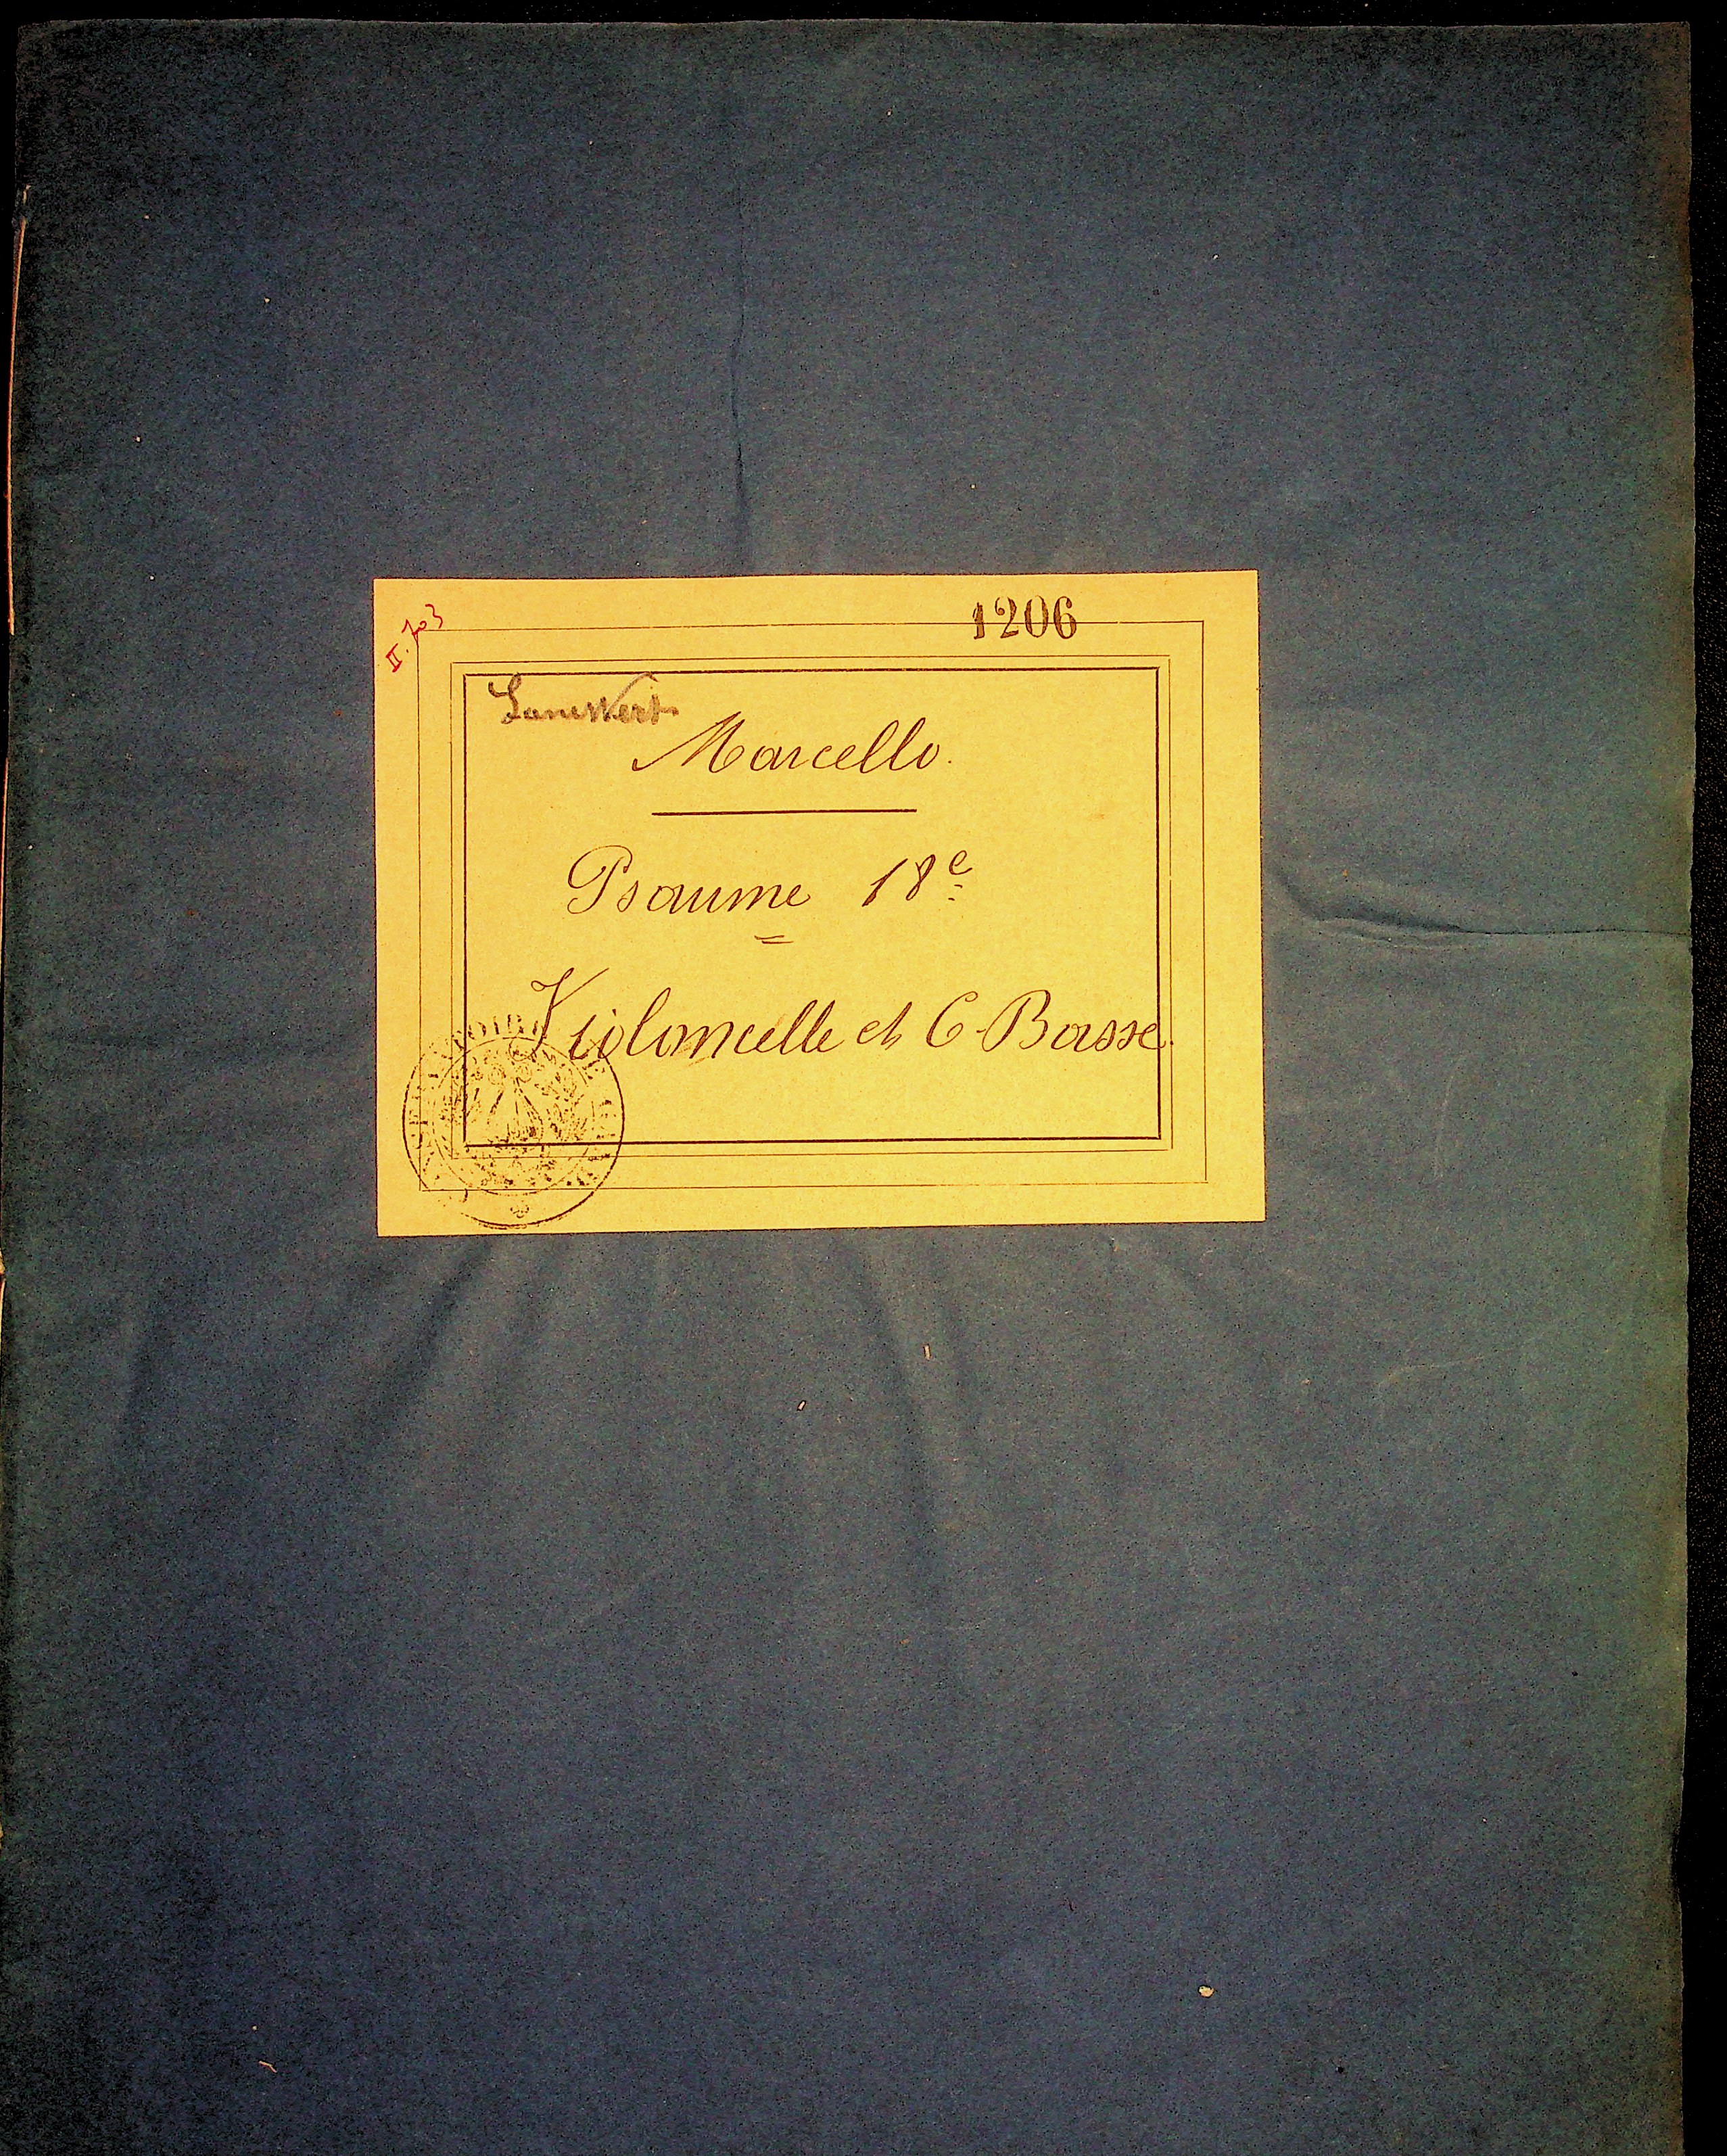 II. 703
1206
Marcello.
Psaume 18e
Violoncelle et C-Basse.